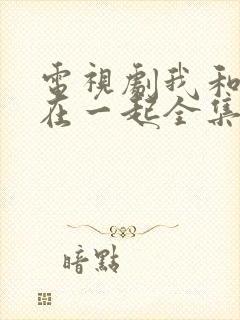 電視劇我和
在一起全集
暗點